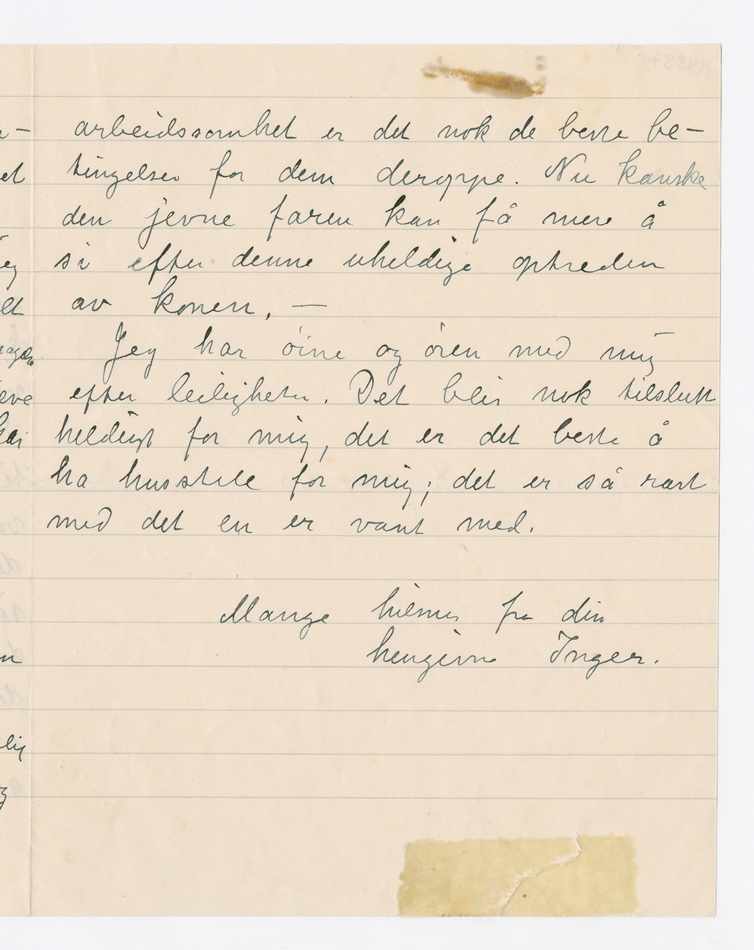 arbeidssomhet er det nok de beste be-
tingelser for dem deroppe. Nu kanske
den jevne faren kan få mere å
si efter denne uheldige optreden
av konen, —
Jeg har öine og ören med mig
efter leiligheter. Det blir nok tilslutt
heldigst for mig, det er det beste å
ha husstell for mig; det er så rart
med det en er vant med.
Mange hilsner fra din
hengivne Inger.